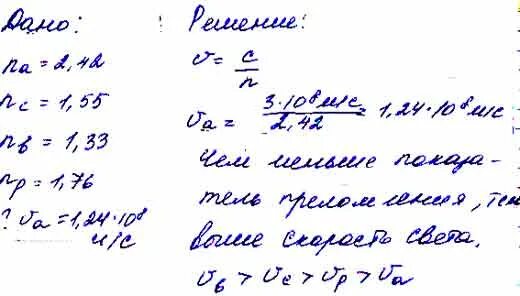 Дано:
nа = 2,42
nс = 1,55
nв = 1,33
nр = 1,76
? υа = 1,24·10⁸
м/с
Решение:
υ = c/n
υа = 3·10⁸ м/с / 2,42 = 1,24·10⁸ м/с
Чем меньше показа-
тель преломления, тем
выше скорость света.
υв > υс > υр > υа